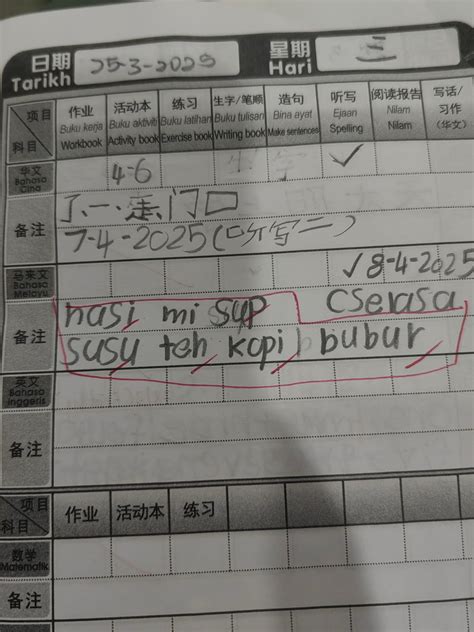 日期 Tarikh 25-3-2025 星期 Hari 三
项目 科目
作业 Buku kerja Workbook
活动本 Buku aktiviti Activity book
练习 Buku latihan Exercise book
生字/笔顺 Buku tulisan Writing book
造句 Bina ayat Make sentences
听写 Ejaan Spelling
阅读报告 Nilam Nilam
写话/习作 (华文)
华文 Bahasa Cina 4-6 ✓
备注
7-4-2025(听写二)
马来文 Bahasa Melayu ✓ 8-4-2025
备注 nasi mi sup
susu teh kopi bubur
英文 Bahasa Inggeris
备注
项目 科目 作业 活动本 练习
数学 Matematik
备注